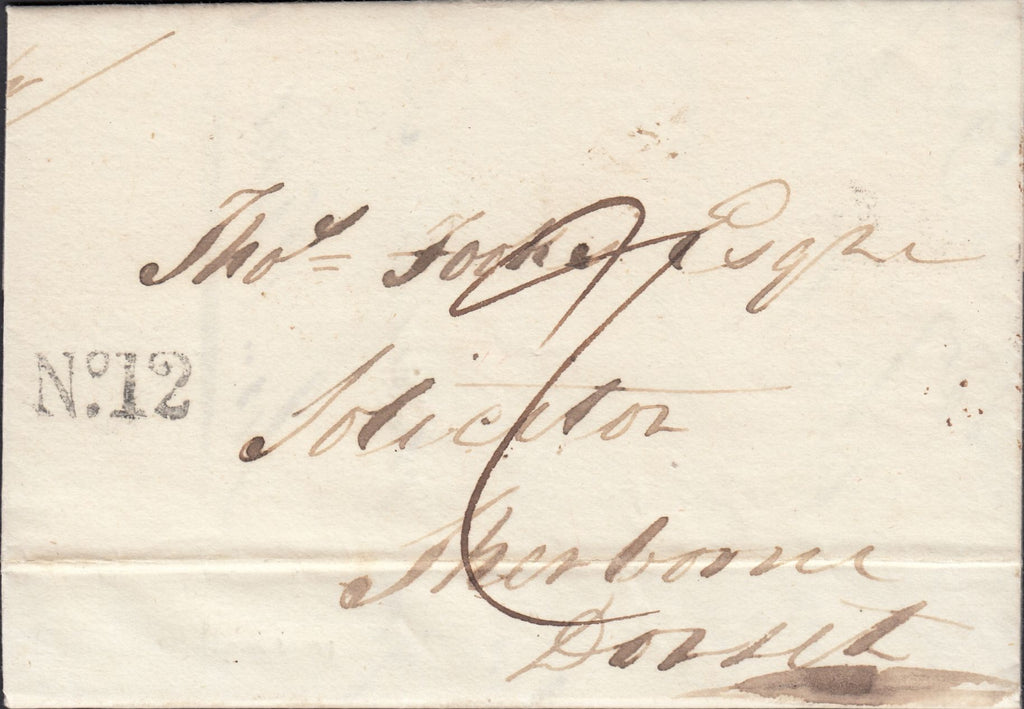 Thos Fookes Esqre
No. 12
Solicitor
Sherborne
Dorset